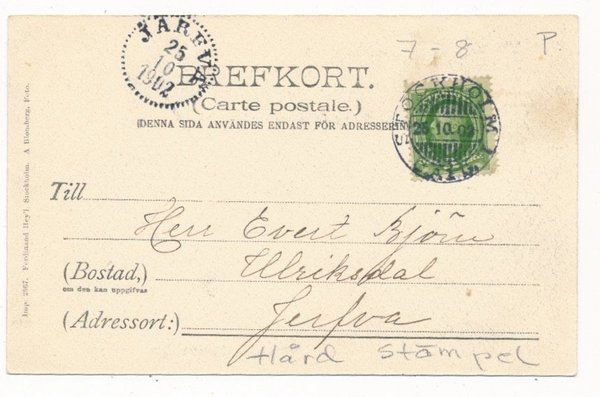 JÄRFVA
25
10
1902
7-8 P
BREFKORT.
(Carte postale.)
(DENNA SIDA ANVÄNDES ENDAST FÖR ADRESSERIN
STOCKHOLM 1
25.10.02
Till Herr Evert Björn
(Bostad,) Ulriksdal
om den kan uppgifvas
(Adressort:) Jerfva
Hård Stämpel
Imp. 2967. Ferdinand Hey'l Stockholm. A Blomberg, Foto.